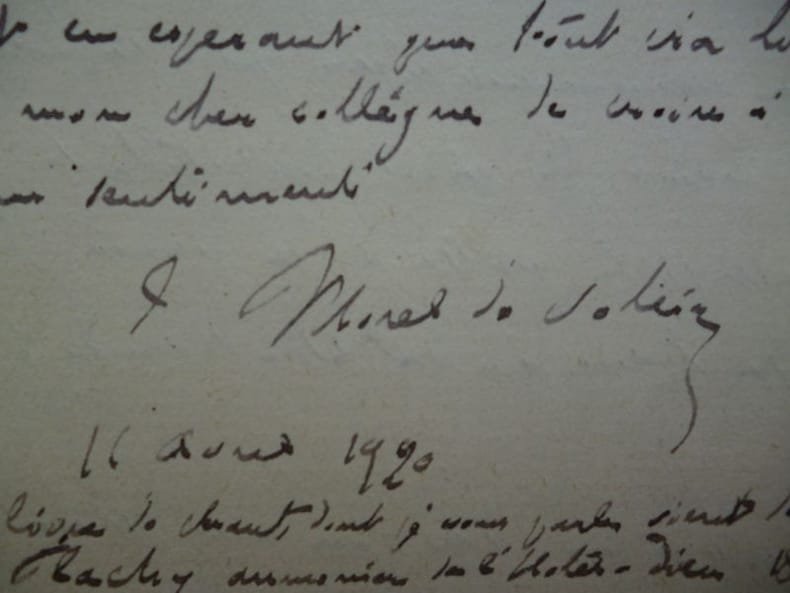 en espérant que tout ira
mon cher collègue de croire à
sentiments
Morel de Voleine
16 Avril 1920
de chant, dont je vous parle vient
aumonier de l'Hotel-Dieu